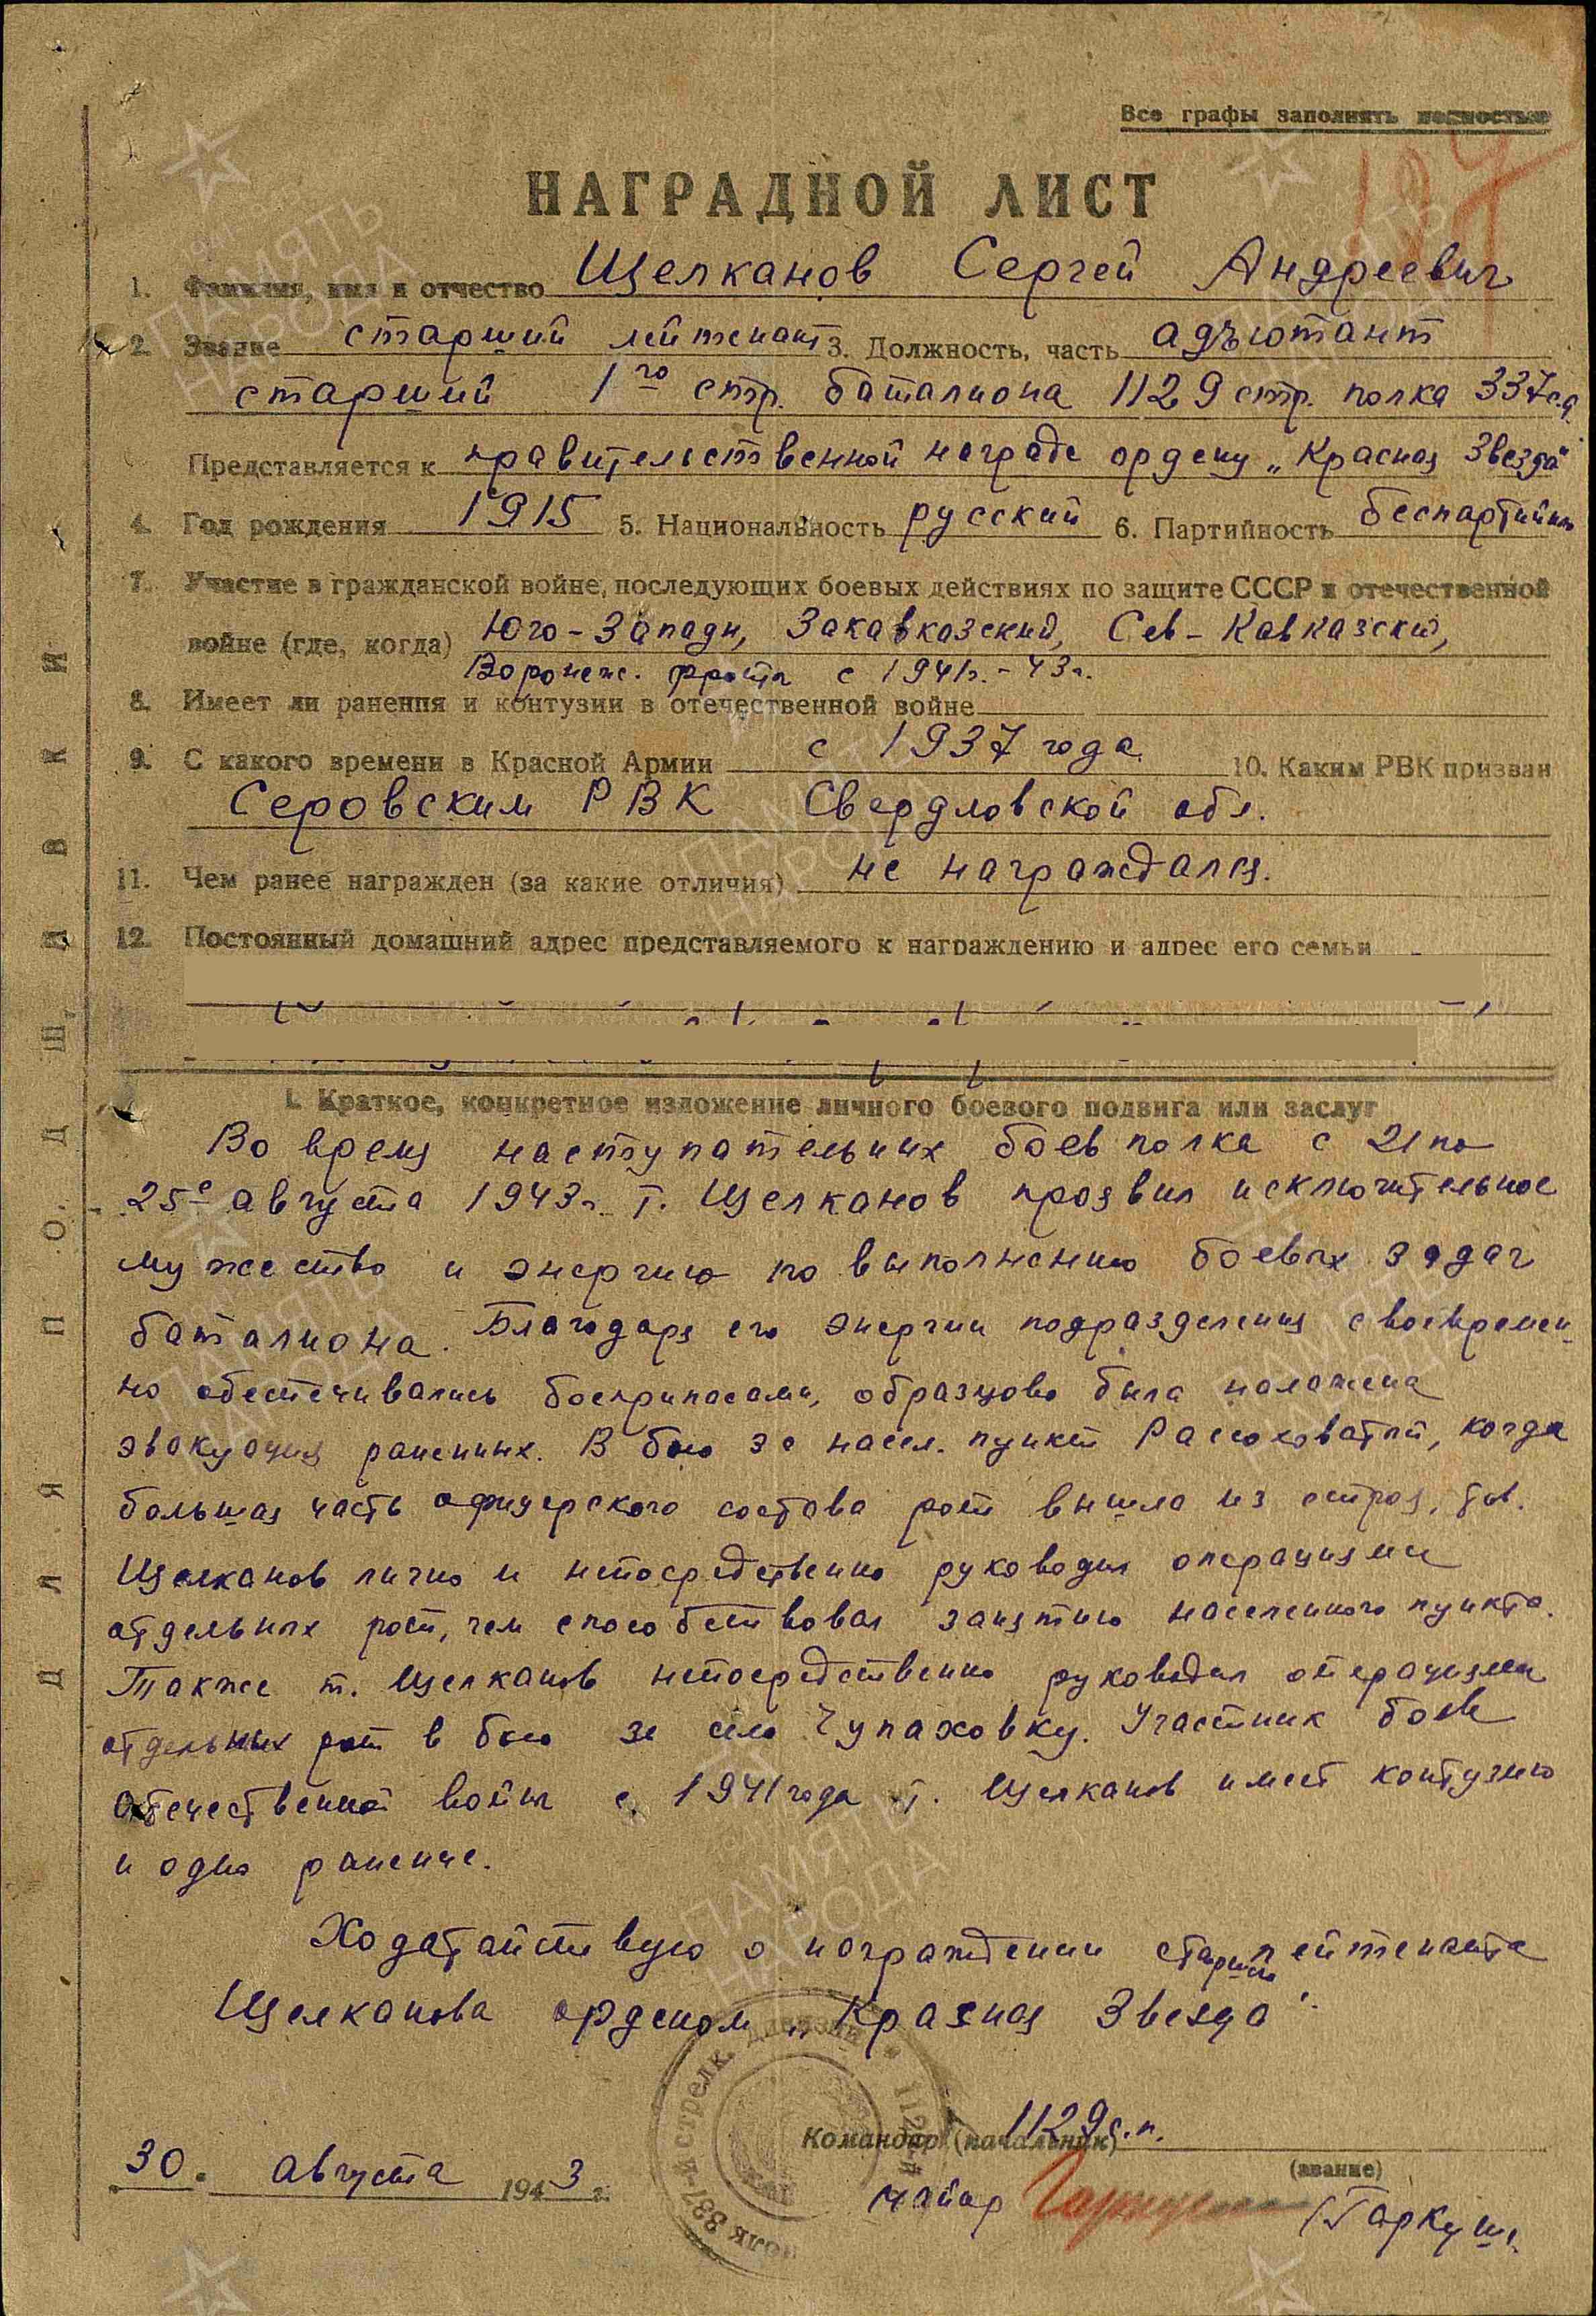 Все графы заполнять полностью
НАГРАДНОЙ ЛИСТ
1. Фамилия, имя и отчество Щелканов Сергей Андреевич
2. Звание старший лейтенант 3. Должность, часть адъютант
старший 1го стр. баталиона 1129 стр. полка 337 с.д.
Представляется к правительственной награде ордену „Красная Звезда"
4. Год рождения 1915 5. Национальность русский 6. Партийность беспартийный
7. Участие в гражданской войне, последующих боевых действиях по защите СССР и отечественной
войне (где, когда) Юго-Западн, Закавказский, Сев-Кавказский,
Воронеж. фронты с 1941г.-43г.
8. Имеет ли ранения и контузии в отечественной войне
9. С какого времени в Красной Армии с 1937 года 10. Каким РВК призван
Серовским РВК Свердловской обл.
11. Чем ранее награжден (за какие отличия) не награждался.
12. Постоянный домашний адрес представляемого к награждению и адрес его семьи
I. Краткое, конкретное изложение личного боевого подвига или заслуг
Во время наступательных боев полка с 21 по
25е августа 1943г. т. Щелканов проявил исключительное
мужество и энергию по выполнению боевых задач
баталиона. Благодаря его энергии подразделения своевремен-
но обеспечивались боеприпасами, образцово была налажена
эвакуация раненных. В бою за насел. пункт Рассоховатый, когда
большая часть офицерского состава рот вышла из строя, тов.
Щелканов лично и непосредственно руководил операциями
отдельных рот, чем способствовал занятию населенного пункта.
Также т. Щелканов непосредственно руководил операциями
отдельных рот в бою за село Чупаховку. Участник боев
отечественной войны с 1941 года т. Щелканов имеет контузию
и одно ранение.
Ходатайствую о награждении старшего лейтенанта
Щелканова орденом „Красная Звезда".
Командир (начальник) 1129 с.п.
(звание)
30. августа 1943 г.
майор (Гаркуша
полк 337-й стрелк. дивизии * 1129-й
ДЛЯ ПОДШИВКИ
ПАМЯТЬ НАРОДА